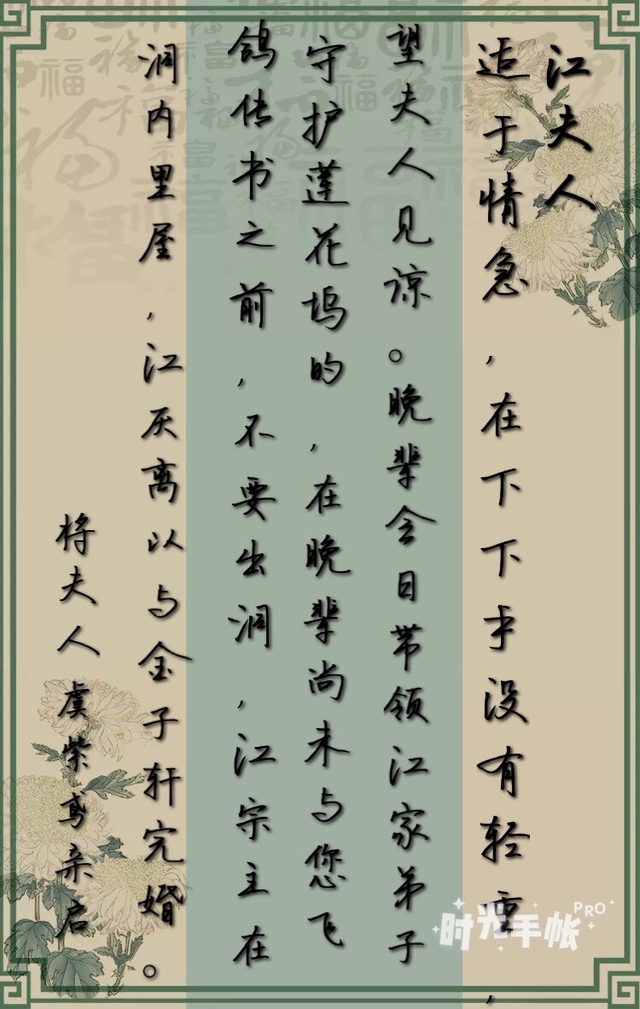 江夫人
迫于情急,在下下手没有轻重,
望夫人见谅。晚辈会日带领江家弟子
守护莲花坞的,在晚辈尚未与您飞
鸽传书之前,不要出洞,江宗主在
洞内里屋,江厌离以与金子轩完婚。
将夫人虞紫鸢亲启
时光手帐PRO